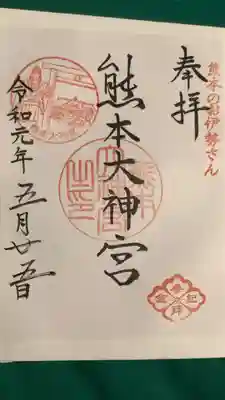 熊本の形伊勢さん
奉拝
熊本大神宮
令和元年五月廿五日